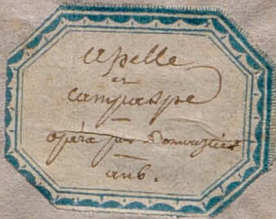 apelle
et
campaspe
opéra par Demoustier
an 6.